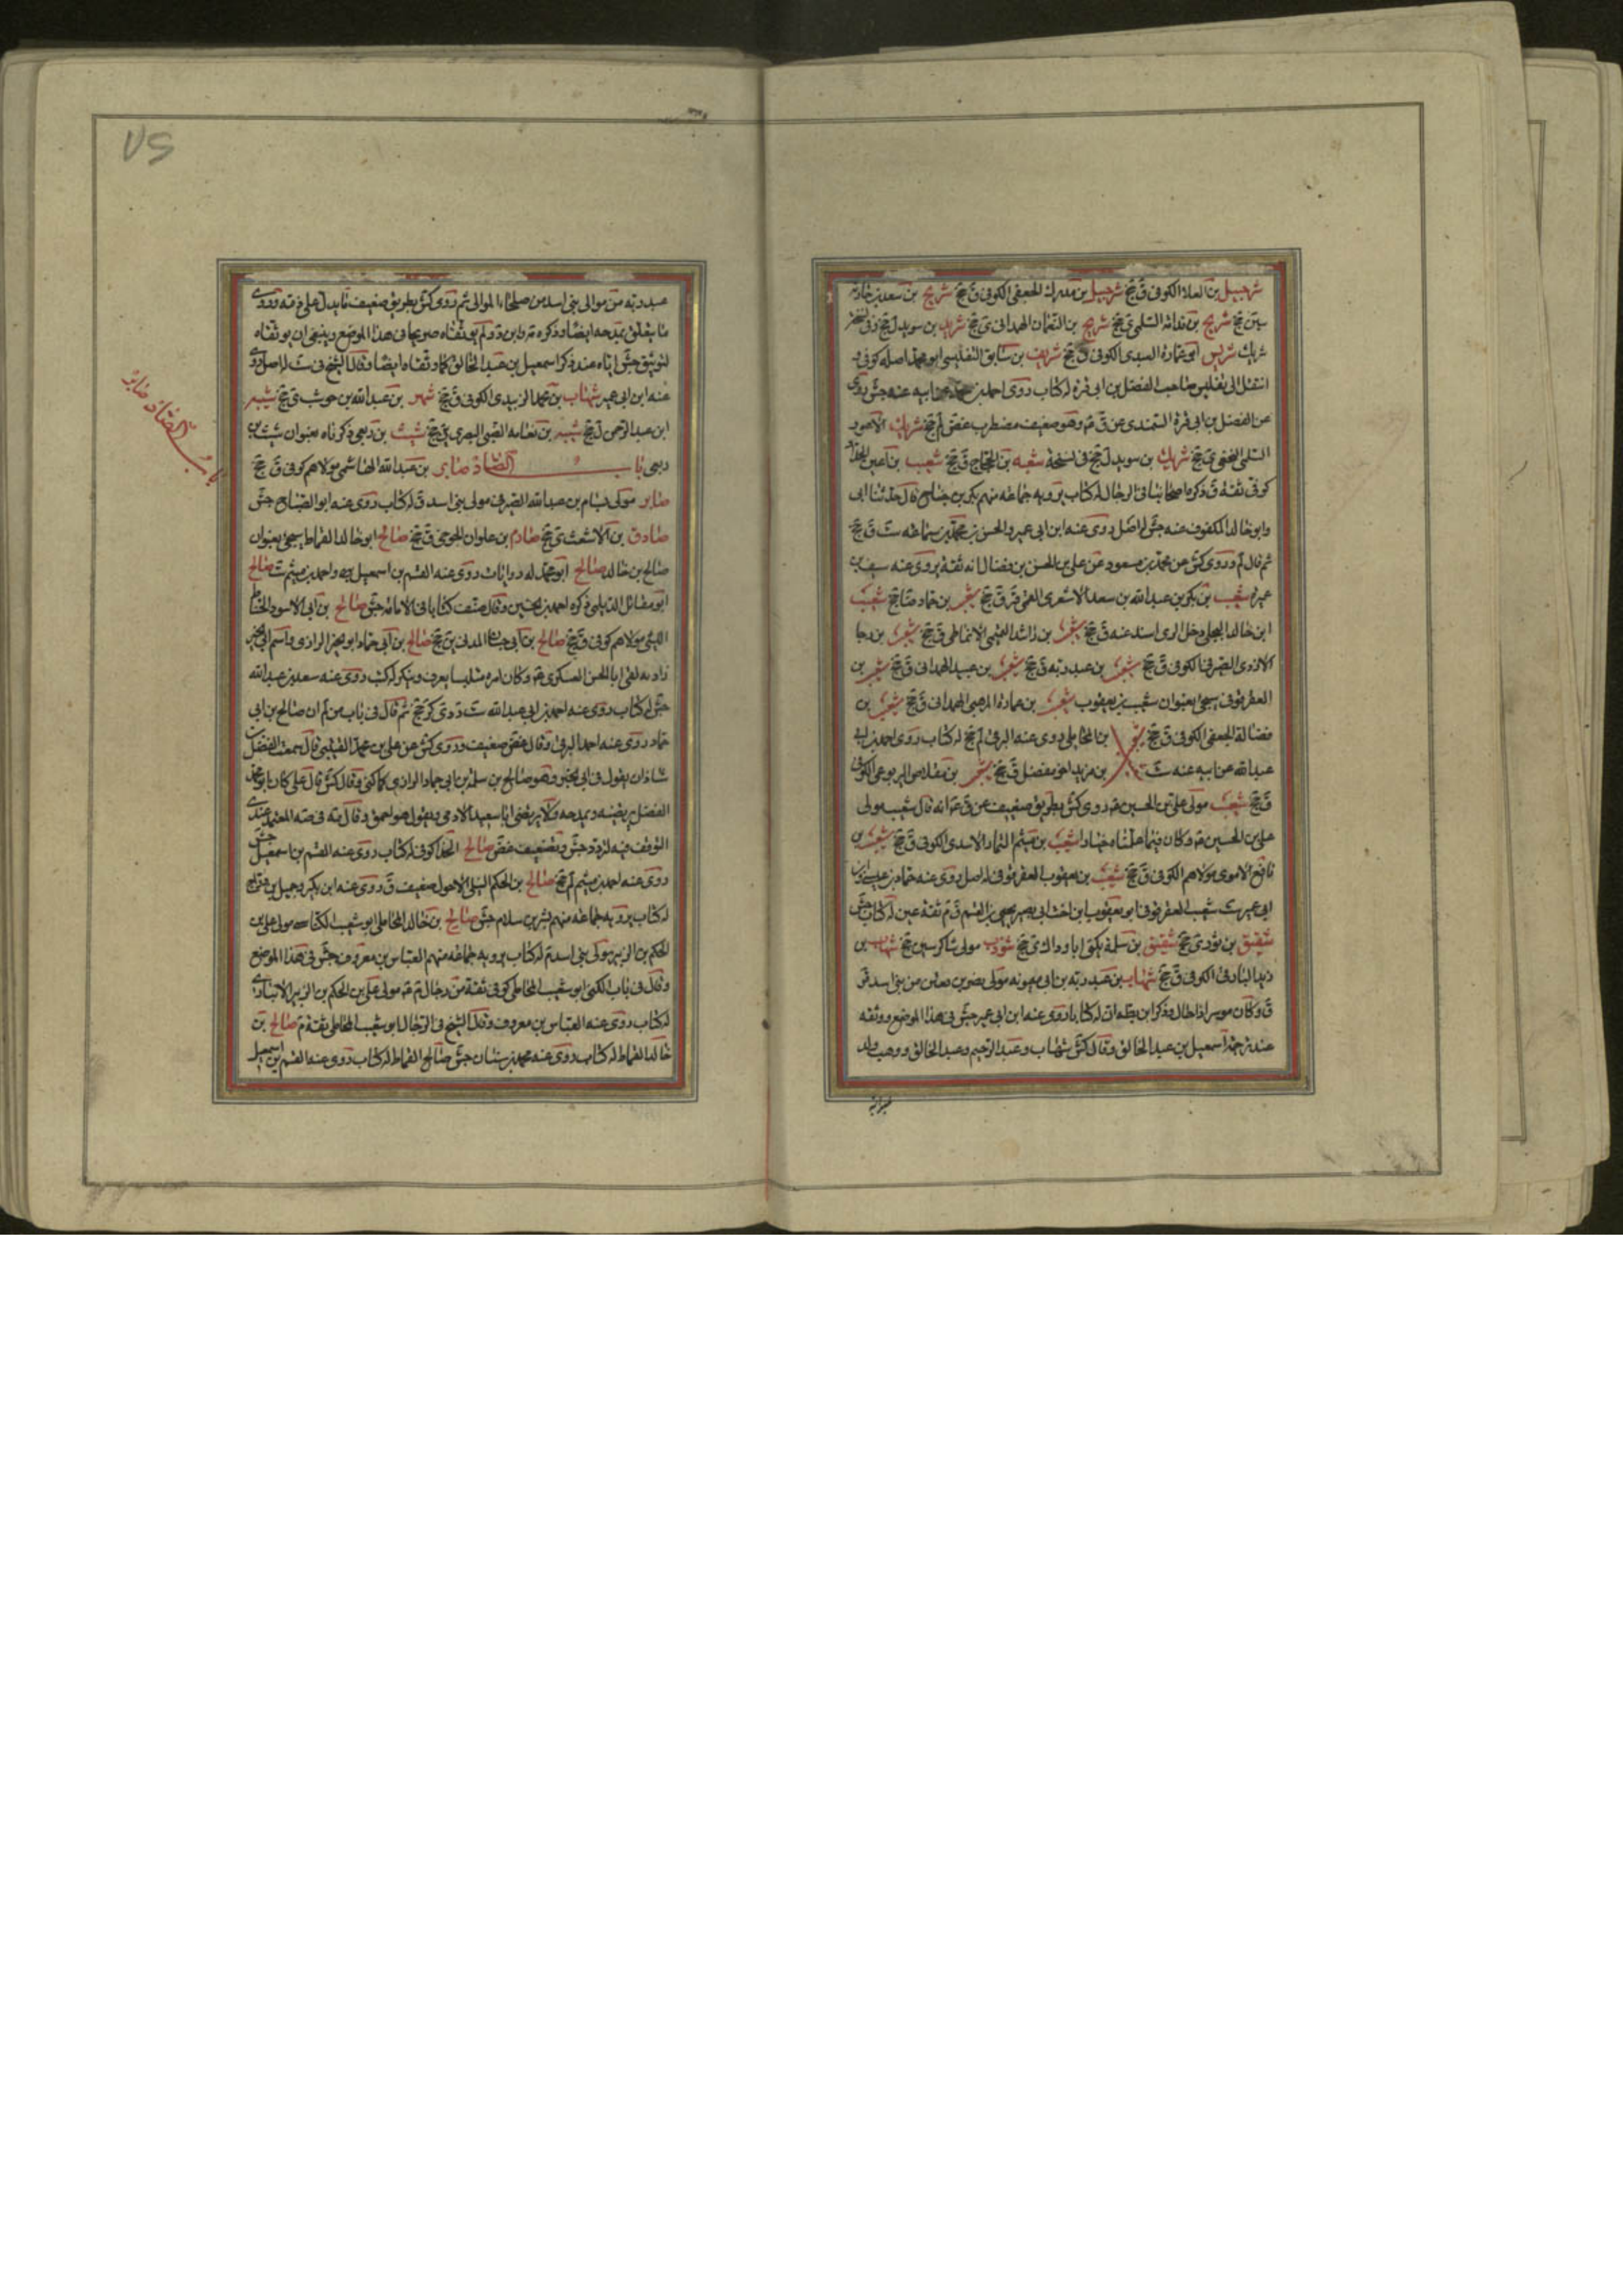 شرحبيل بن العلا الكوفى ق جخ شرحبيل بن مدرك الجعفى الكوفى ق جخ شريح بن سعد بن حارثه
سين جخ شريح بن قدامة السلمى ى جخ شريح بن النعمان الهمدانى ى جخ شريد بن سويد ل جخ
شريك شريس ابو عمارة العبدى الكوفى ق جخ شريف بن سابق التفليسى ابو محمد اصله كوفى
انتقل الى تفليس صاحب الفضل بن ابى قرة له كتاب روى احمد بن محمد عن ابيه عنه جش روى
عن الفضل بن ابى قرة السمندى عن ق ع وهو ضعيف مضطرب غض لم جخ شريك الاعور
السلمى النخعى ى جخ شريك بن سويد ل جخ فى نسخة شعبه بن الحجاج ق جخ شعيب بن اعين الحداد
كوفى ثقة ق ذكره اصحابنا فى الرجال له كتاب يرويه جماعة منهم بكر بن جناح قال حدثنا ابى
وابو خالد المكفوف عنه جش له اصل روى عنه ابن ابى عمير والحسن بن محمد بن سماعة ست ق جخ
ثم قال لم وروى كش عن محمد بن مسعود عن على بن الحسن بن فضال انه ثقة يروى عنه سيف بن
عميره شعيب بن بكر بن عبد الله بن سعد الاشعرى القمى قر ق جخ شعيب بن حماد ضا جخ شعيب
ابن خالد البجلى دخل الرى اسند عنه ق جخ شعيب بن راشد التميمى الانماطى ق جخ شعيب بن رجا
الازدى الصيرفى الكوفى ق جخ شعيب بن عبد ربه ق جخ شعيب بن عبيد الهمدانى ق جخ شعيب بن
العقرقوفى سيجئ بعنوان شعيب بن يعقوب شعيب بن عمارة المرهبى الهمدانى ق جخ شعيب بن
فضالة الجعفى الكوفى ق جخ شعيب بن المحاملى روى عنه البرقى لم جخ له كتاب روى احمد بن ابى
عبد الله عن ابيه عنه ست بن مزيد اخو مفضل ق جخ شعيب بن مقلاص اليربوعى الكوفى
ق جخ شعيب مولى على بن الحسين ع روى كش بطريق ضعيف عن ق ع انه قال شعيب مولى
على بن الحسين ع وكان فيما علمناه خيارا شعيب بن ميثم التمار الاسدى الكوفى ق جخ شعيب بن
نافع الاموى مولاهم الكوفى ق جخ شعيب بن يعقوب العقرقوفى له اصل روى عنه حماد بن عيسى وابن
ابى عمير ست شعيب العقرقوفى ابو يعقوب ابن اخت ابى بصير يحيى بن القسم ق م ثقة عين له كتاب جش
شقيق بن ثور ى جخ شقيق بن سلمة يكنى ابا وداك ى جخ شوذب مولى شاكر سين جخ شهاب بن
زيد البارقى الكوفى ق جخ شهاب بن عبد ربه بن ابى ميمونه مولى بنى نصر بن قعين من بنى اسد قر
ق وكان موسرا ذا حال وذكر ابن بطه ان له كتابا روى عنه ابن ابى عمير جش فى هذا الموضع ووثقه
عند ترجمة اسمعيل بن عبد الخالق وقال كش شهاب وعبد الرحيم وعبد الخالق ووهب ولد
عبد ربه
٧٥
عبد ربه من موالى بنى اسد من صلحاء الموالى ثم روى كش بطريق ضعيف ما يدل على ذمه وروى
ما يتعلق بمدحه ايضا وذكره مه وابن د ولم يوثقاه صريحا فى هذا الموضع وينبغى ان يوثقاه
لتوثيق جش اياه عند ذكر اسمعيل بن عبد الخالق كما وثقاه ايضا وقال الشيخ فى ست له اصل روى
عنه ابن ابى عمير شهاب بن محمد الزبيدى الكوفى ق جخ شهر بن عبد الله بن حوشب ى جخ شيبه
ابن عبد الرحمن ل جخ شيبه بن نعامة الضبى البصرى ين جخ شيث بن ربعى ذكرناه بعنوان شبث بن
ربعى باب الصاد صابر بن عبد الله الهاشمى مولاهم كوفى ق جخ
صابر مولى بسام بن عبد الله الصيرفى مولى بنى اسد ق له كتاب روى عنه ابو الصباح جش
صادق بن الاشعث ى جخ صارم بن علوان الجوخى ق جخ صالح ابو خالد القماط سيجئ بعنوان
صالح بن خالد صالح ابو محمد له روايات روى عنه القسم بن اسمعيل وه واحمد بن ميثم ست صالح
ابو مقاتل الديلمى ذكره احمد بن الحسين وقال صنف كتابا فى الامامة جش صالح بن ابى الاسود الحناط
الليثى مولاهم كوفى ق جخ صالح بن ابى حسان المدنى ين جخ صالح بن ابى حماد ابو الخير الرازى واسم ابى الخير
زاد به لقى ابا الحسن العسكرى ع وكان امره ملتبسا يعرف وينكر له كتب روى عنه سعد بن عبد الله
جش له كتاب روى عنه احمد بن ابى عبد الله ست د دى كر جخ ثم قال فى باب من لم ان صالح بن ابى
حماد روى عنه احمد البرقى وقال غض ضعيف وروى كش عن على بن محمد القتيبى قال سمعت الفضل بن
شاذان يقول فى ابى الخير وهو صالح بن سلمة بن ابى حماد الرازى كما كنى وقال كش قال على كان ابو محمد
الفضل يرتضيه ويمدحه ولا يرتضى ابا سعيد الادمى ويقول هو احمق وقال مه فى صه المعتمد عندى
التوقف فيه لتردد جش وتضعيف غض صالح الحذا كوفى له كتاب روى عنه القسم بن اسمعيل جش
روى عنه احمد بن ميثم لم جخ صالح بن الحكم النيلى الاحول ضعيف ق روى عنه ابن بكير وجميل بن دراج
له كتاب يرويه جماعة منهم بشر بن سلام جش صالح بن خالد المحاملى ابو شعيب الكناسى مولى على بن
الحكم بن الزبير مولى بنى اسد م له كتاب يرويه جماعة منهم العباس بن معروف جش فى هذا الموضع
وقال فى باب الكنى ابو شعيب المحاملى كوفى ثقة من رجال م ع مولى على بن الحكم بن الزبير الانبارى
له كتاب روى عنه العباس بن معروف وقال الشيخ فى الرجال ابو شعيب المحاملى ثقة م صالح بن
خالد القماط له كتاب روى عنه محمد بن سنان جش صالح القماط له كتاب روى عنه القسم بن اسمعيل
باب الصاد صابر